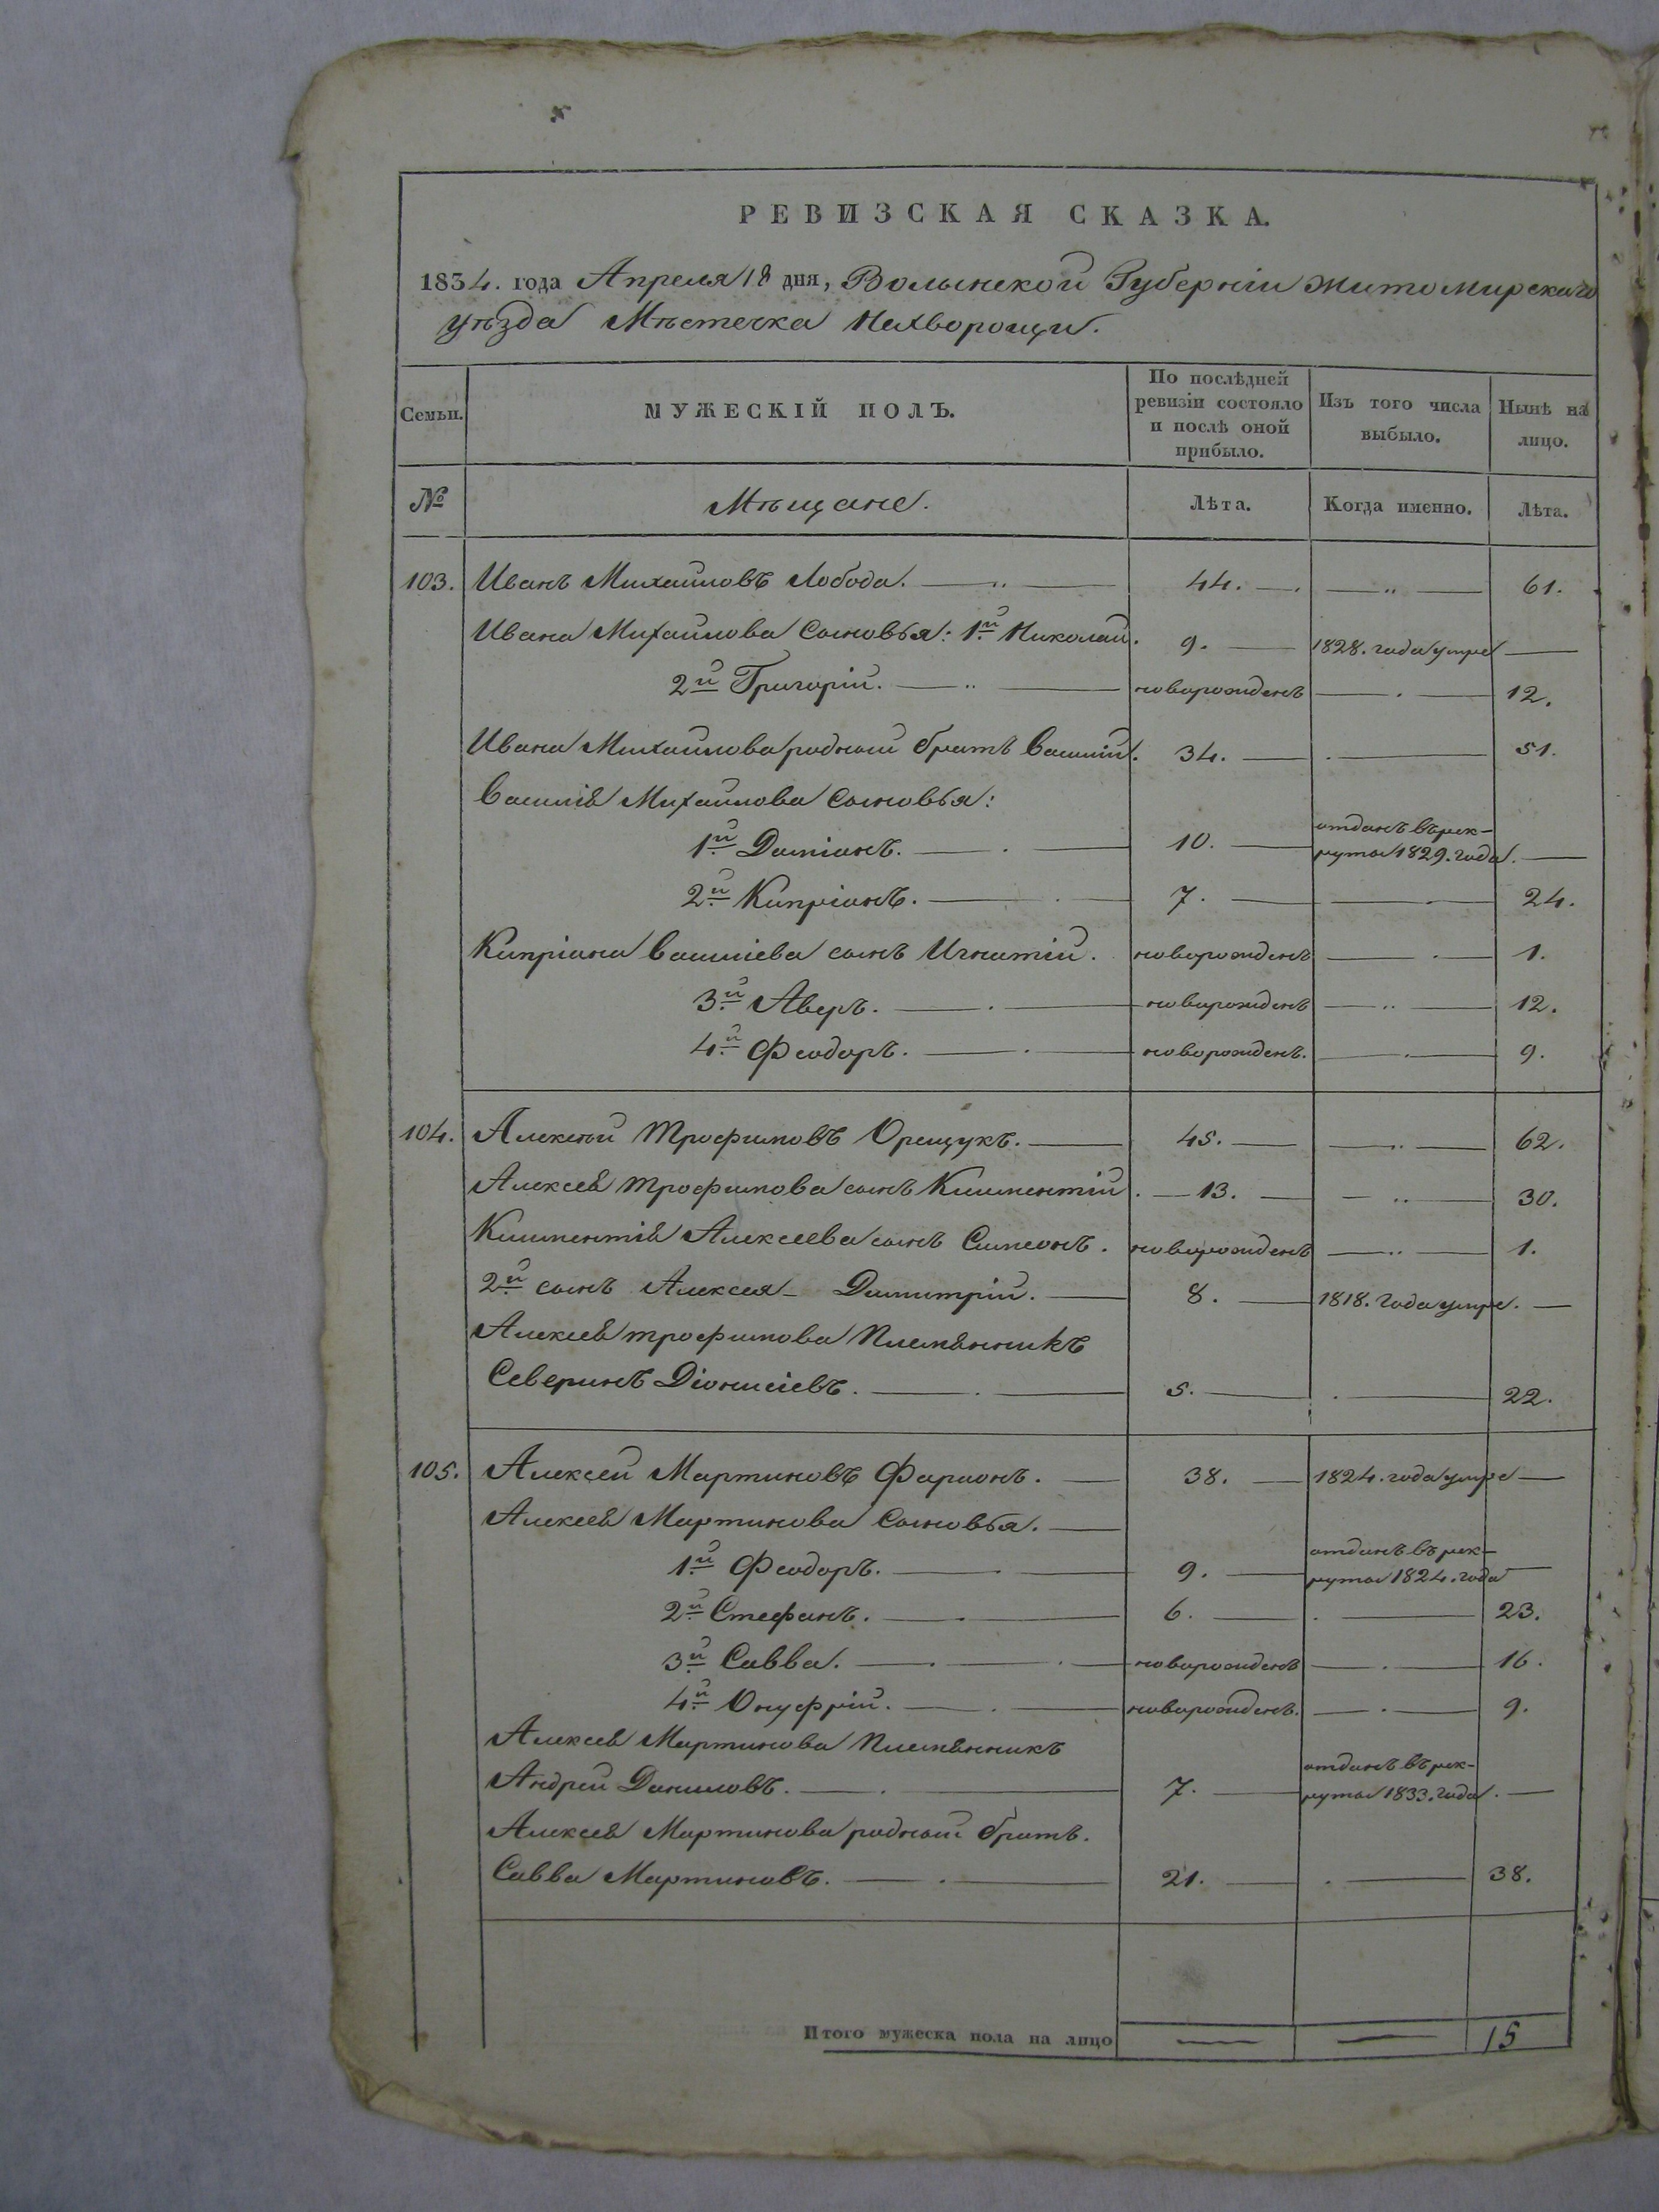 РЕВИЗСКАЯ СКАЗКА.
1834. года Апреля 18 дня, Волынской Губерніи Житомирскаго
уѣзда Мѣстечка Нехворощи.
Семьи. МУЖЕСКІЙ ПОЛЪ. По послѣдней ревизіи состояло и послѣ оной прибыло. Изъ того числа выбыло. Нынѣ на лицо.
№ Мѣщане. Лѣта. Когда именно. Лѣта.
103. Иванъ Михайловъ Лобода. 44. 61.
Ивана Михайлова Сыновья: 1й Николай. 9. 1828. года умре
2й Григорій. новорожденъ 12.
Ивана Михайлова родный братъ Василій. 34. 51.
Василія Михайлова Сыновья:
1й Даміанъ. 10. отданъ въ рек-
руты 1829. года.
2й Кипріанъ. 7. 24.
Кипріана Василіева сынъ Игнатій. новорожденъ 1.
3й Аверъ. новорожденъ 12.
4й Феодоръ. новорожденъ. 9.
104. Алексѣй Трофимовъ Орещукъ. 45. 62.
Алексея Трофимова сынъ Климентій. 13. 30.
Климентія Алексеева сынъ Симеонъ. новорожденъ 1.
2й сынъ Алексея Димитрій. 8. 1818. года умре.
Алексея трофимова Племянникъ
Северинъ Діонисіевъ. 5. 22.
105. Алексей Мартиновъ Фарионъ. 38. 1824. года умре
Алексея Мартинова Сыновья.
1й Феодоръ. 9. отданъ въ рек-
руты 1824. года
2й Стефанъ. 6. 23.
3й Савва. новорожденъ 16.
4й Онуфрій. новорожденъ. 9.
Алексея Мартинова Племянникъ
Андрей Даниловъ. 7. отданъ въ рек-
руты 1833. года.
Алексея Мартинова родный братъ.
Савва Мартиновъ. 21. 38.
Итого мужеска пола на лицо 15